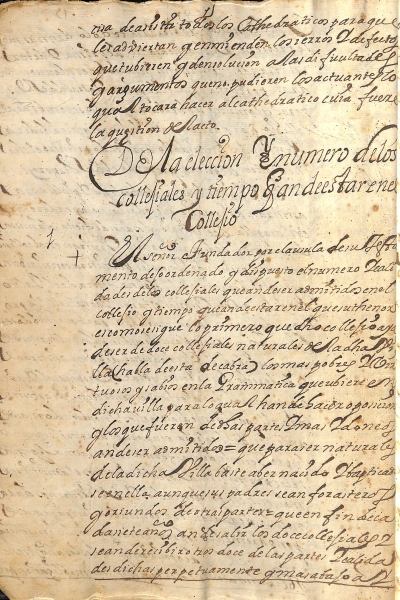 cia de asistir todos los Cathedraticos para que
les adviertan y enmienden los ierros y defectos
que tubieren y den solucion a las dificultades
y argumentos que no pudieren los actuantes lo
qual tocará hacer al cathedratico cuia fuere
la question del acto.
De la eleccion y numero de los
collesiales y tiempo q an de estar en el
Collesio
1
N señor Fundador por clausula de su Testa
mento deso ordenado y dispuesto el numero y cali
dades de los collesiales que an de ser admitidos en el
collesio y tiempo que an de estar en el
es como se sigue lo primero que dho collesio a
de ser de doce collesiales naturales de la dha Vi
lla (habla de esta de cabra) los mas pobres
tuosos y sabios en la Grammatica que ubiere en
dicha villa para lo qual han de hacer oposicion
y los que fueren de las partes mas ydoneos
an de ser admitidos = que para ser naturales
de la dicha Villa baste aber nacido y baptizado
se en ella, aunque sus padres sean forasteros
y oriundos de otras partes = que en fin de ca
da siete años an de salir los doce collesiales y
se an de recibir otros doce de las partes y calida
des dichas perpetuamente y mas abajo